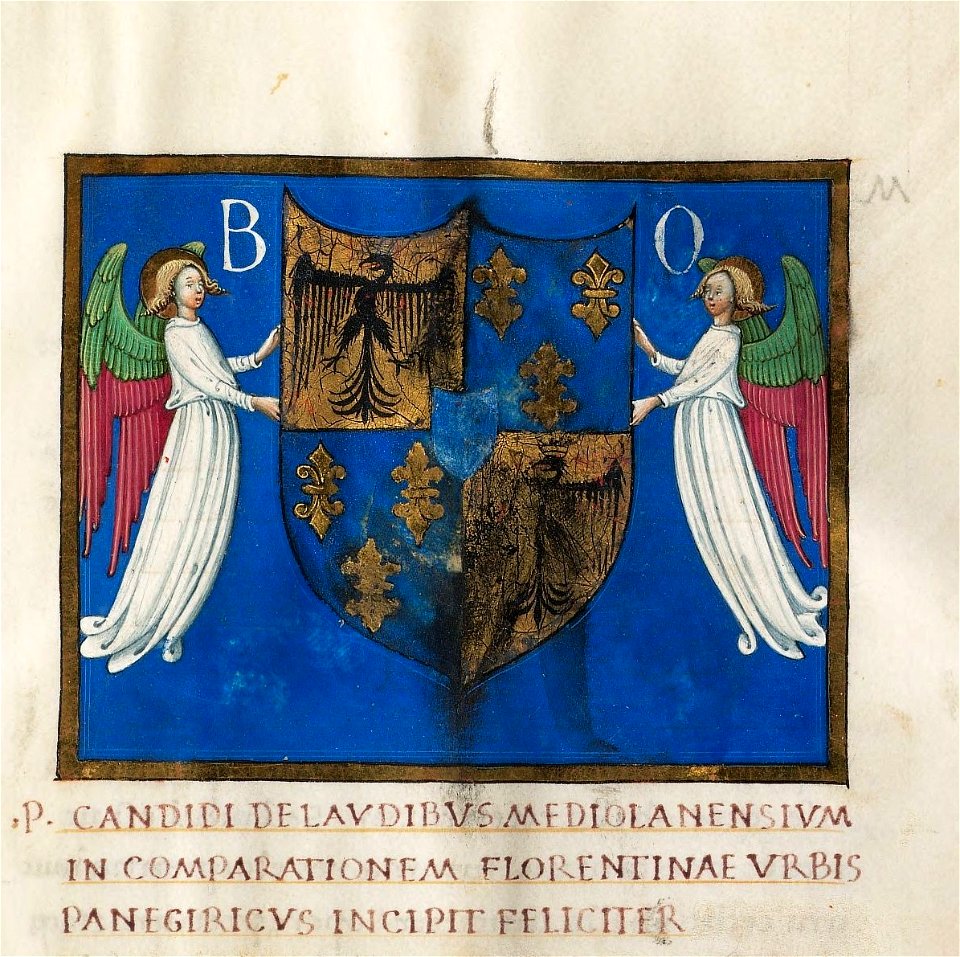 B O
M
.P. CANDIDI DE LAVDIBVS MEDIOLANENSIVM
IN COMPARATIONEM FLORENTINAE VRBIS
PANEGIRICVS INCIPIT FELICITER